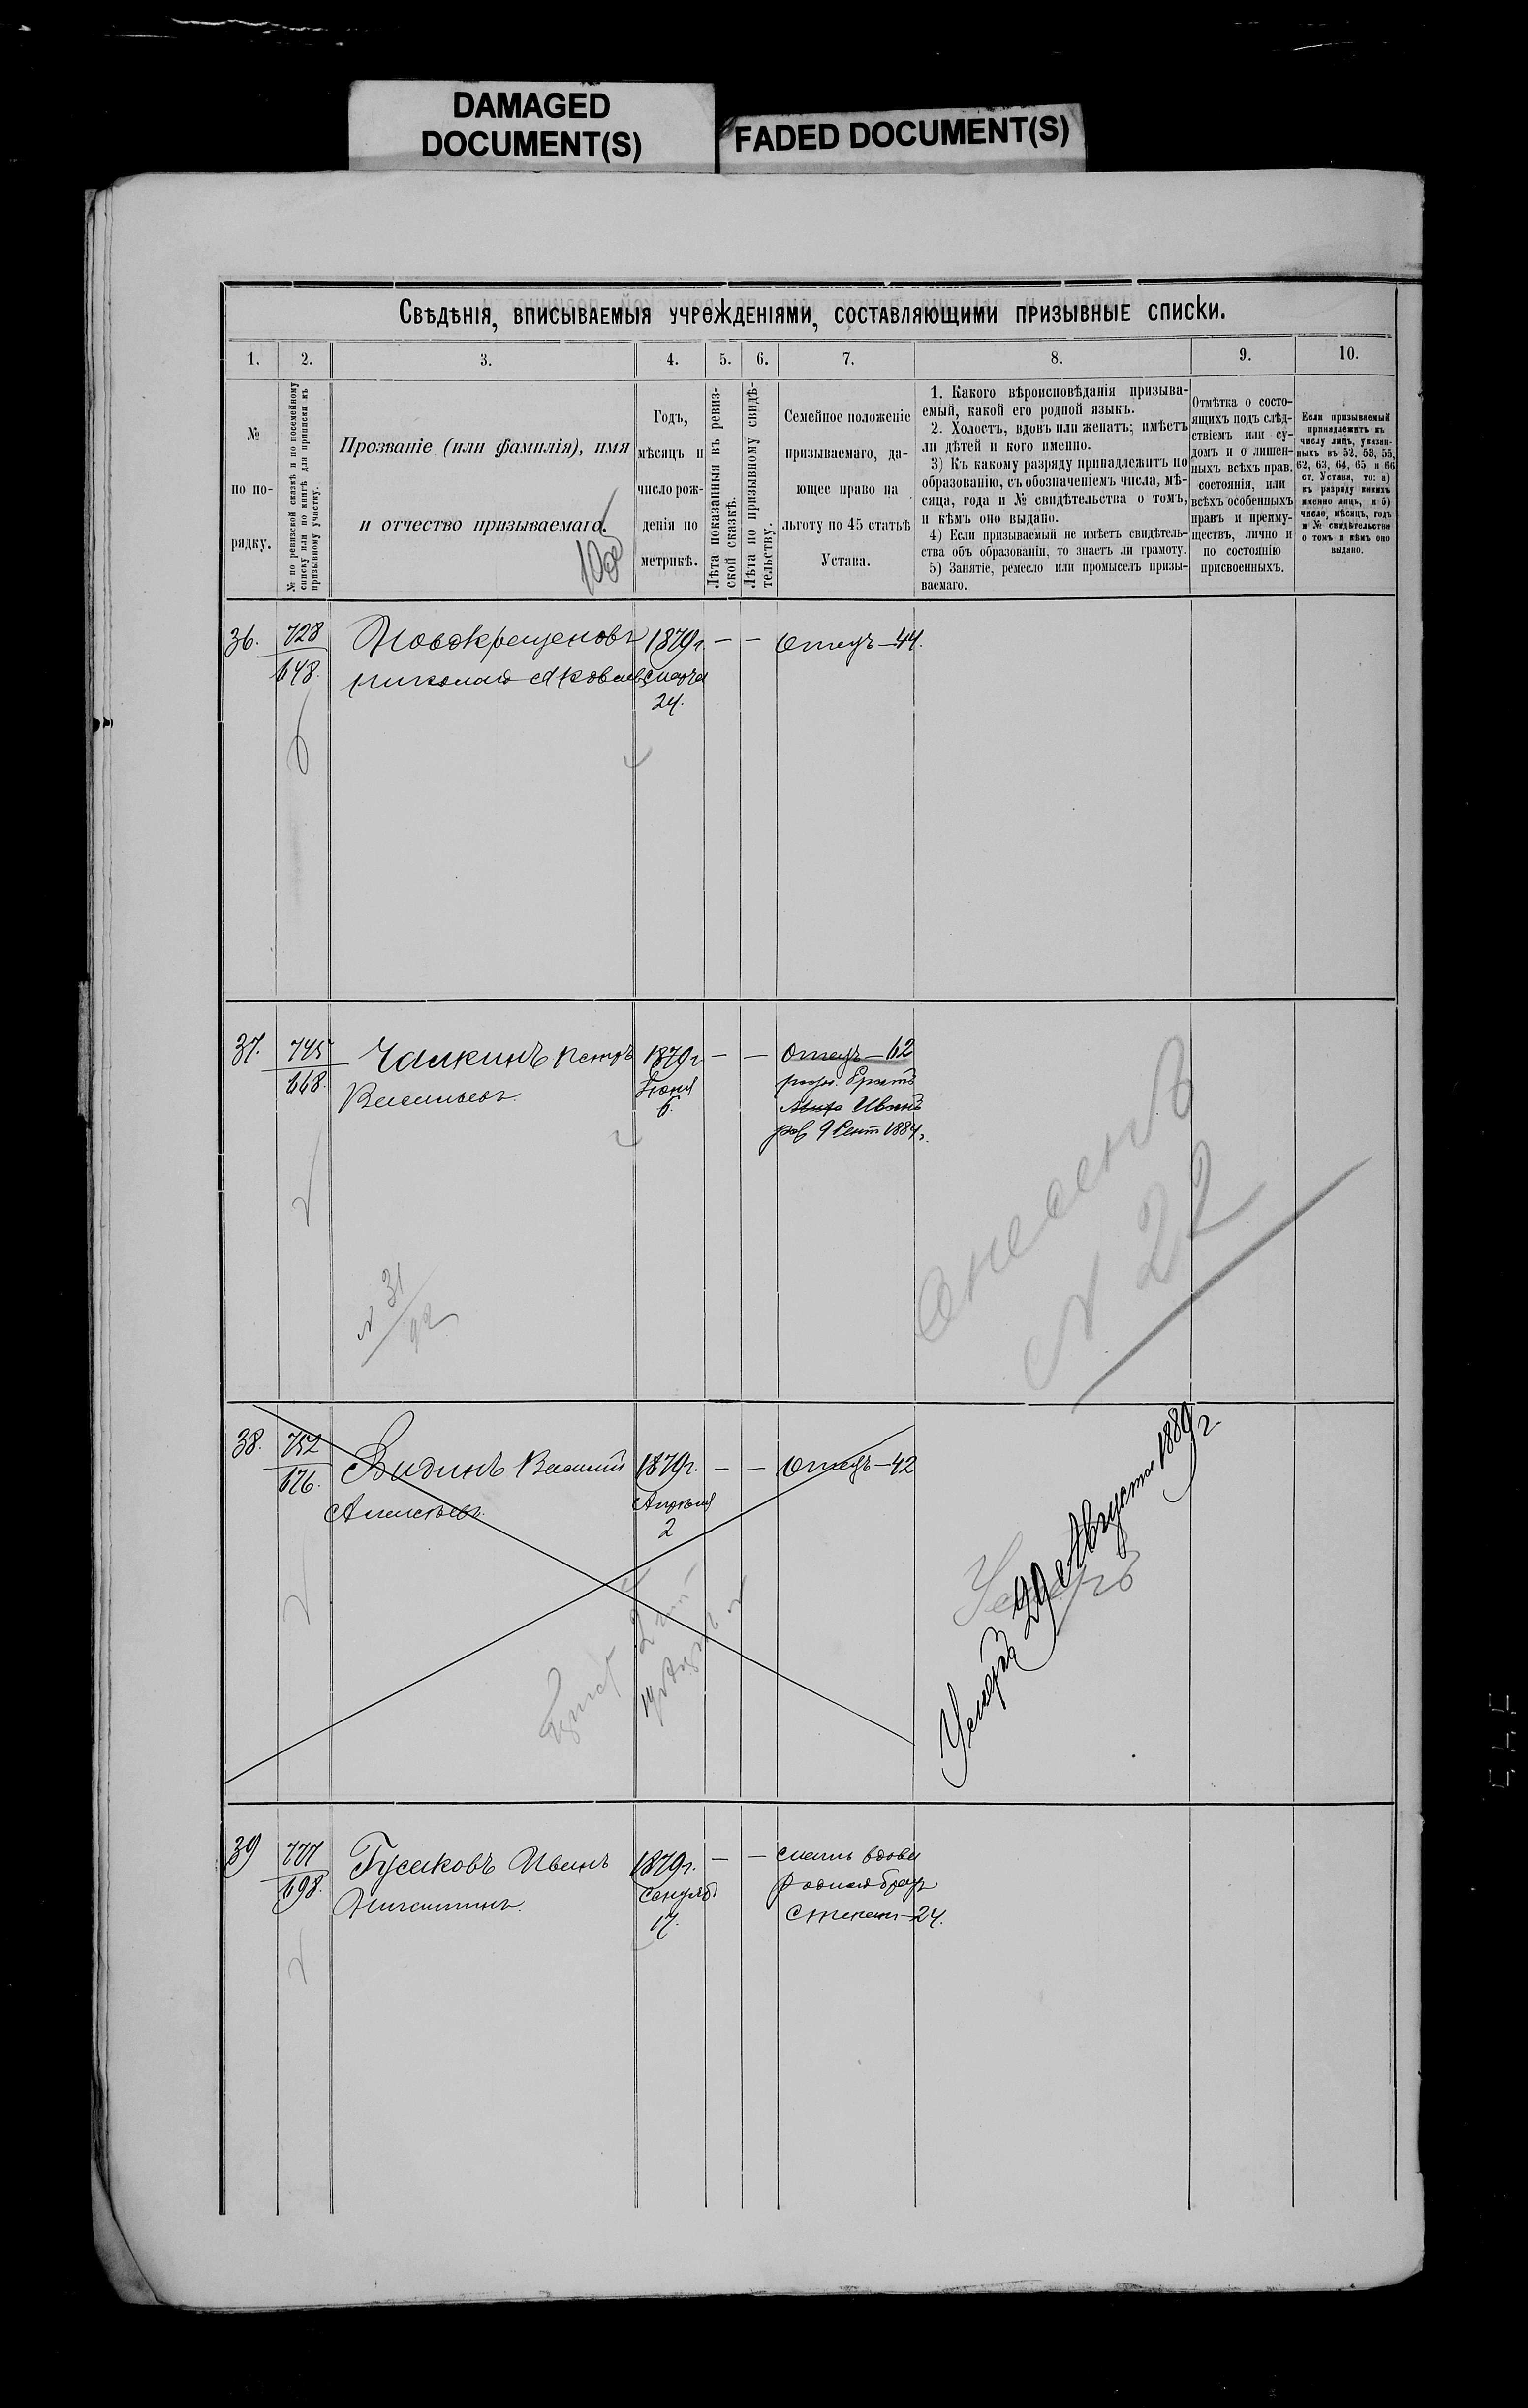 DAMAGED
DOCUMENT(S)
FADED DOCUMENT(S)
Свѣдѣнія, вписываемыя учрежденіями, составляющими призывные списки.
1. 2. 3. 4. 5. 6. 7. 8. 9. 10.
№
по по-
рядку.
№ по ревизской сказкѣ и по посемейному
списку или по книгѣ для приписки къ
призывному участку.
Прозваніе (или фамилія), имя
и отчество призываемаго.
Годъ,
мѣсяцъ и
число рож-
денія по
метрикѣ.
Лѣта показанныя въ ревиз-
ской сказкѣ.
Лѣта по призывному свидѣ-
тельству.
Семейное положеніе
призываемаго, да-
ющее право на
льготу по 45 статьѣ
Устава.
1. Какого вѣроисповѣданія призыва-
емый, какой его родной языкъ.
2. Холостъ, вдовъ или женатъ; имѣетъ
ли дѣтей и кого именно.
3) Къ какому разряду принадлежитъ по
образованію, съ обозначеніемъ числа, мѣ-
сяца, года и № свидѣтельства о томъ,
и кѣмъ оно выдано.
4) Если призываемый не имѣетъ свидѣтель-
ства объ образованіи, то знаетъ ли грамоту.
5) Занятіе, ремесло или промыселъ призы-
ваемаго.
Отмѣтка о состо-
ящихъ подъ слѣд-
ствіемъ или су-
домъ и о лишен-
ныхъ всѣхъ прав.
состоянія, или
всѣхъ особенныхъ
правъ и преиму-
ществъ, лично и
по состоянію
присвоенныхъ.
Если призываемый
принадлежитъ къ
числу лицъ, указан-
ныхъ въ 52, 53, 55,
62, 63, 64, 65 и 66
ст. Устава, то: а)
къ разряду какихъ
именно лицъ, и б)
число, мѣсяцъ, годъ
и № свидѣтельства
о томъ и кѣмъ оно
выдано.
36. 728 Новокрещеновъ 1879 г. — — Отецъ—44.
648. Николай Яковлевъ Марта
24.
37. 745 Чалкинъ Петръ 1879 г. — — Отецъ—62
668. Васильевъ. Іюня
6.
родн. братъ
Иванъ
9 Сент 1884 г.
№ 31
92
№ 22
38. 752 Видинъ Василий 1879 г. — — Отецъ—42
676. Алексѣевъ. Апрѣля
2
Умеръ
Умеръ 29 Августа 1889 г.
39 777 Гусаковъ Иванъ 1879 г. — — Мать вдова
698. Никитинъ. Января
17.
родной братъ
Степанъ—24.